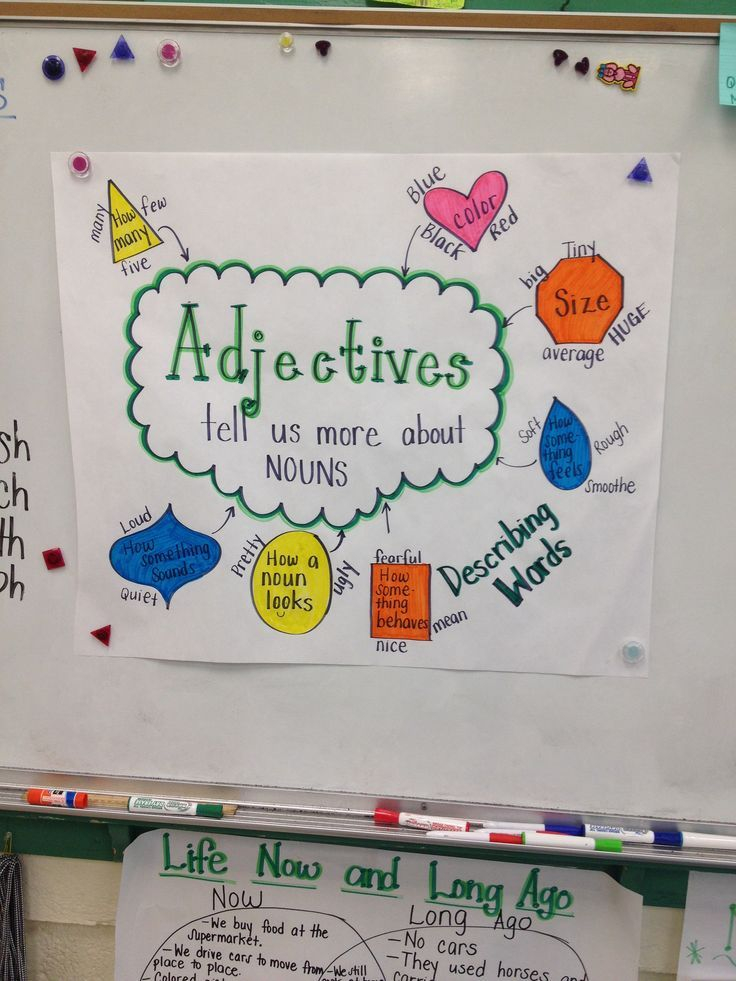 many
How
many
few
five
Blue
color
Black
Red
Adjectives
tell us more about
NOUNS
Tiny
big
Size
HUGE
average
Soft
How
some-
thing
feels
Rough
smoothe
Loud
How
something
sounds
Quiet
Pretty
How a
noun
looks
ugly
fearful
How
some-
thing
behaves
mean
nice
Describing
Words
sh
ch
th
ph
Life Now and Long Ago
Now
-We buy food at the
supermarket.
-We drive cars to move from
place to place.
-Colored
Long Ago
-No cars
-They used horses and
-We still